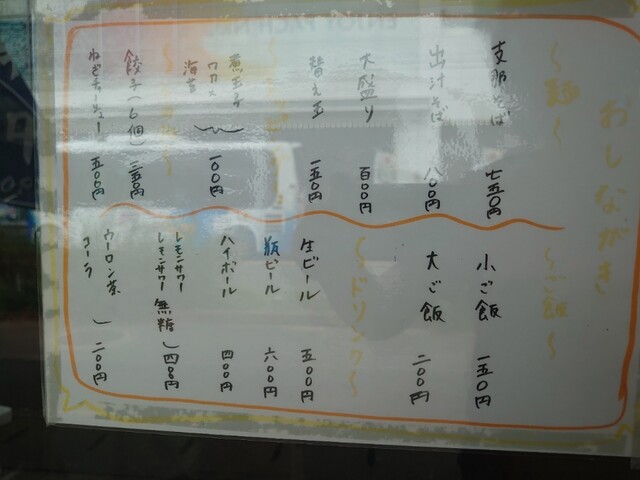 おしながき
〜麺〜
支那そば 七五〇円
出汁そば 八〇〇円
大盛り 百〇〇円
替え玉 一五〇円
煮玉子
ワカメ
海苔 一〇〇円
餃子(6個) 三五〇円
ねぎチャーシュー 五〇〇円
〜ご飯〜
小ご飯 一五〇円
大ご飯 二〇〇円
〜ドリンク〜
生ビール 五〇〇円
瓶ビール 六〇〇円
ハイボール 四〇〇円
レモンサワー
レモンサワー 無糖 四〇〇円
ウーロン茶
コーラ 二〇〇円